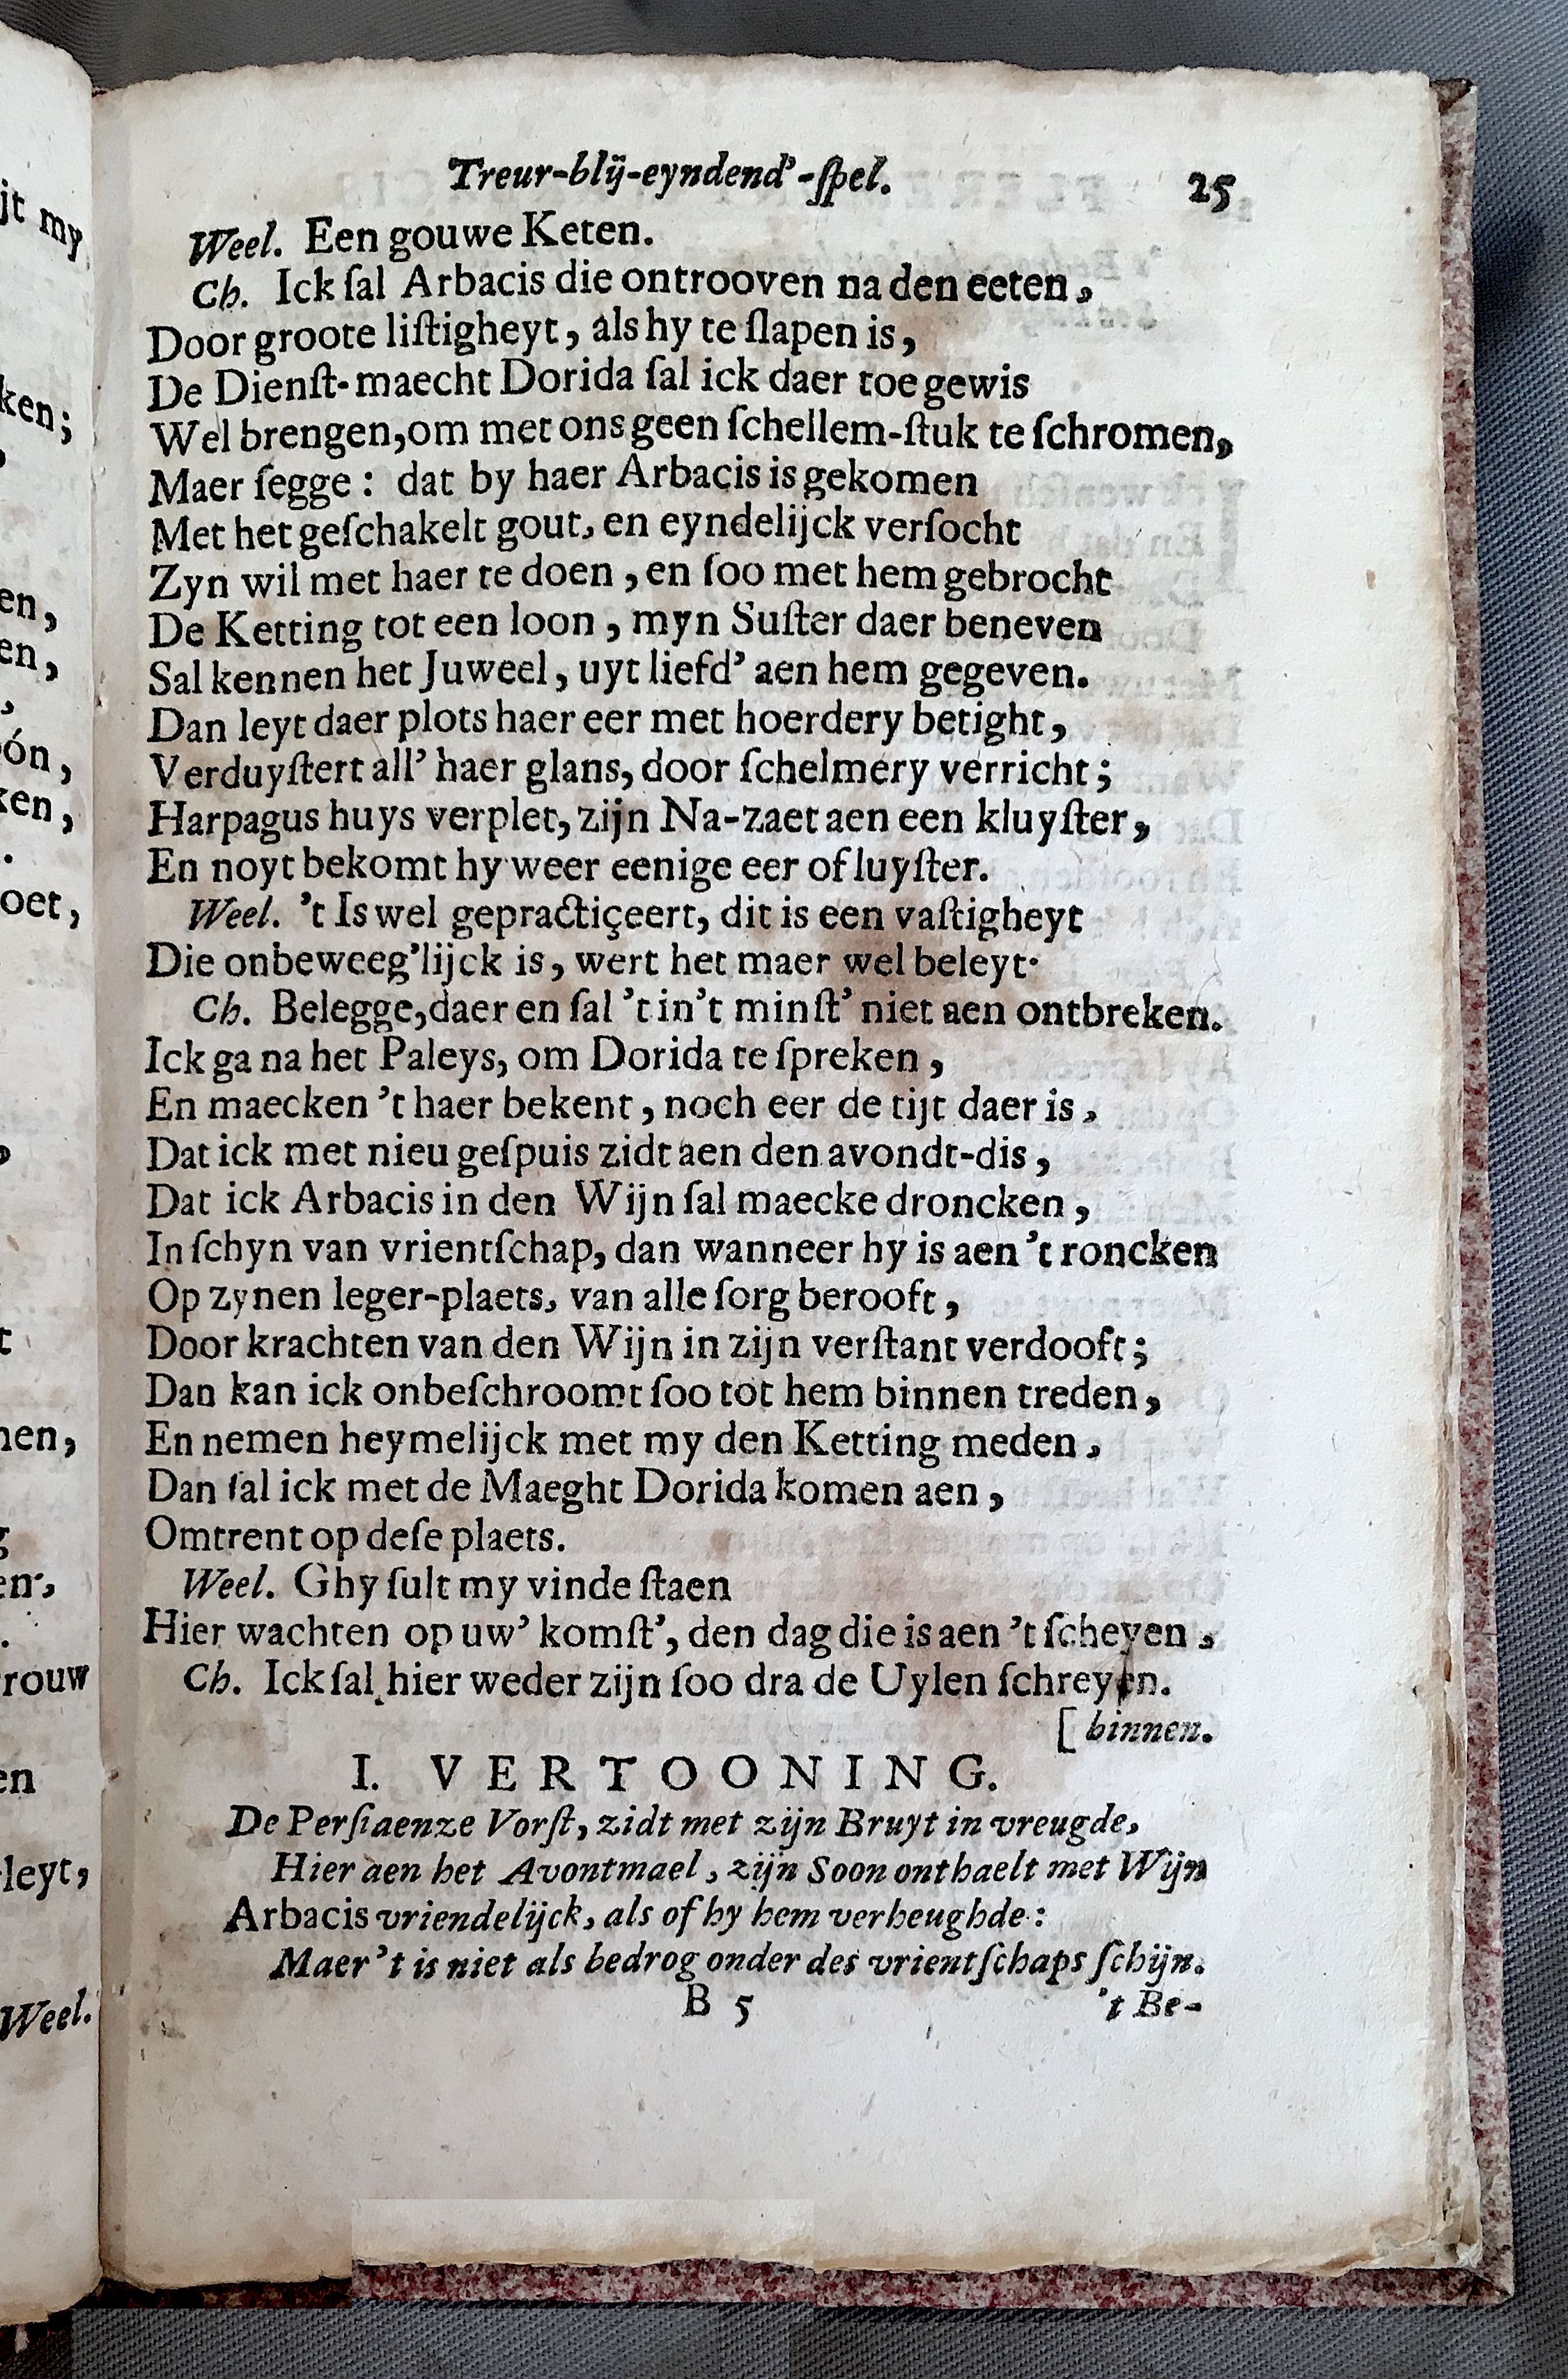 Treur-blij-eyndend'-ſpel. 25
Weel. Een gouwe Keten.
Ch. Ick ſal Arbacis die ontrooven na den eeten,
Door groote liſtigheyt, als hy te ſlapen is,
De Dienſt-maecht Dorida ſal ick daer toe gewis
Wel brengen, om met ons geen ſchellem-ſtuk te ſchromen,
Maer ſegge: dat by haer Arbacis is gekomen
Met het geſchakelt gout, en eyndelijck verſocht
Zyn wil met haer te doen, en ſoo met hem gebrocht
De Ketting tot een loon, myn Suſter daer beneven
Sal kennen het Juweel, uyt liefd' aen hem gegeven.
Dan leyt daer plots haer eer met hoerdery betight,
Verduyſtert all' haer glans, door ſchelmery verricht;
Harpagus huys verplet, zijn Na-zaet aen een kluyſter,
En noyt bekomt hy weer eenige eer of luyſter.
Weel. 't Is wel gepractiçeert, dit is een vaſtigheyt
Die onbeweeg'lijck is, wert het maer wel beleyt.
Ch. Belegge, daer en ſal 't in 't minſt' niet aen ontbreken.
Ick ga na het Paleys, om Dorida te ſpreken,
En maecken 't haer bekent, noch eer de tijt daer is,
Dat ick met nieu geſpuis zidt aen den avondt-dis,
Dat ick Arbacis in den Wijn ſal maecke droncken,
In ſchyn van vrientſchap, dan wanneer hy is aen 't roncken
Op zynen leger-plaets, van alle ſorg berooft,
Door krachten van den Wijn in zijn verſtant verdooft;
Dan kan ick onbeſchroomt ſoo tot hem binnen treden,
En nemen heymelijck met my den Ketting meden,
Dan ſal ick met de Maeght Dorida komen aen,
Omtrent op deſe plaets.
Weel. Ghy ſult my vinde ſtaen
Hier wachten op uw' komſt', den dag die is aen 't ſcheyen,
Ch. Ick ſal hier weder zijn ſoo dra de Uylen ſchreyen.
[ binnen.
I. VERTOONING.
De Perſiaenze Vorſt, zidt met zijn Bruyt in vreugde,
Hier aen het Avontmael, zijn Soon onthaelt met Wijn
Arbacis vriendelijck, als of hy hem verheughde:
Maer 't is niet als bedrog onder des vrientſchaps ſchijn.
B 5 't Be-